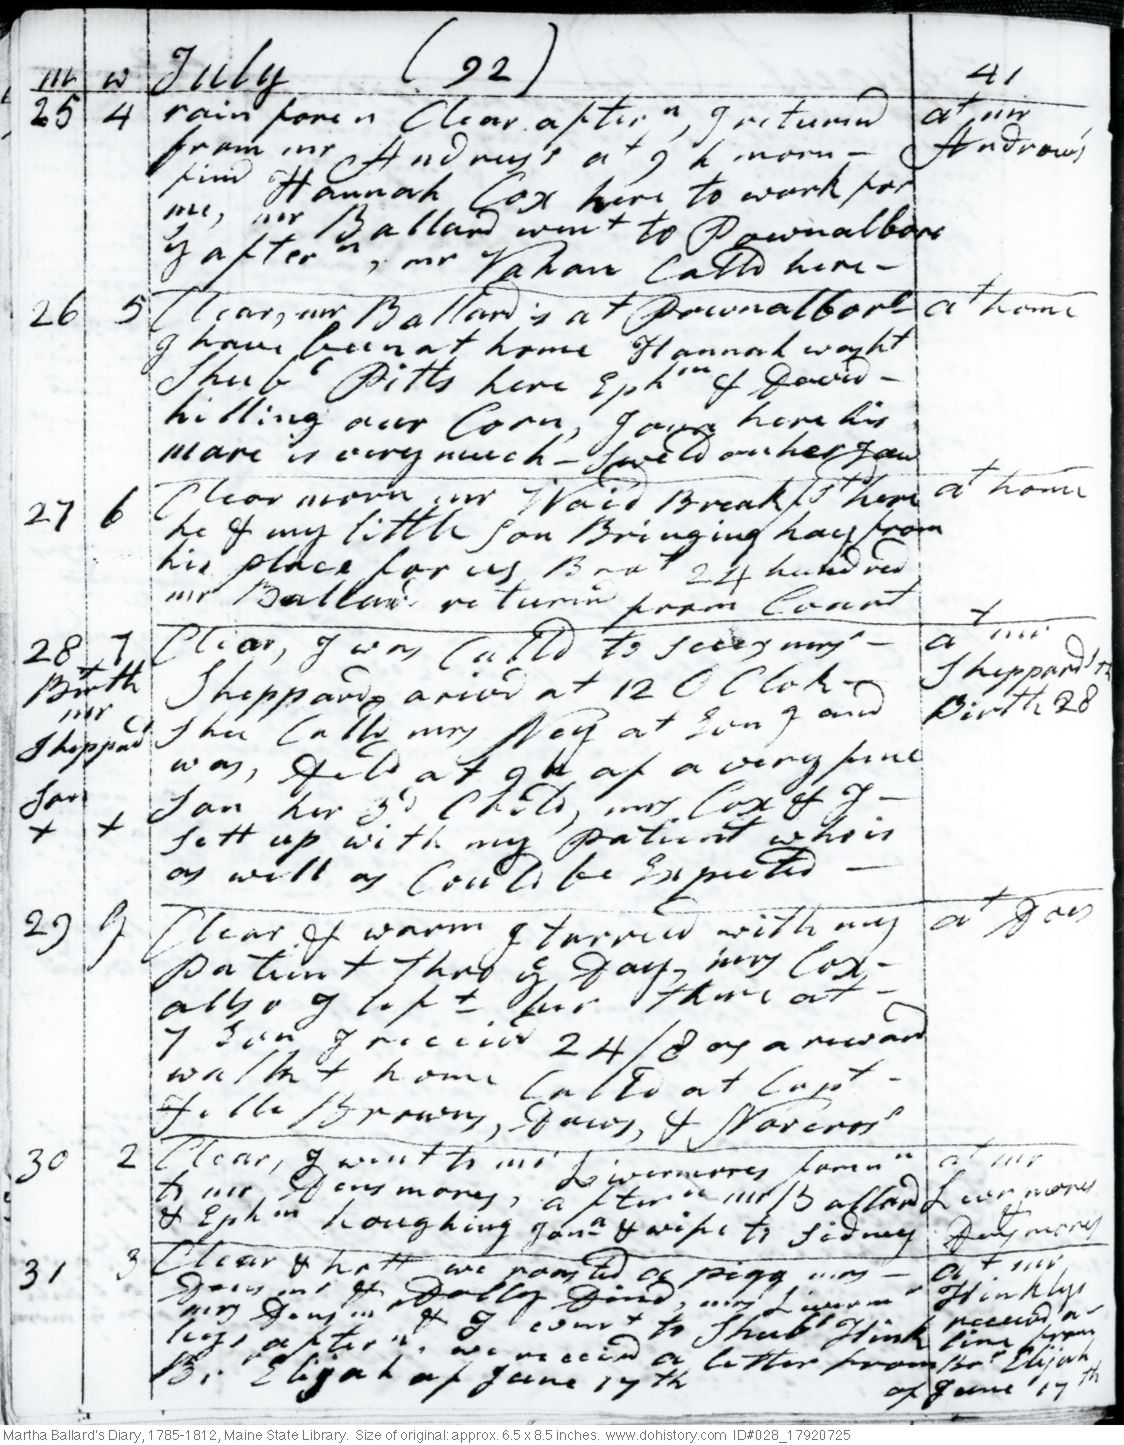 m w July (92) 41
25 4 rain foren Clear aftern, I returnd at mr
from mr Andrus's at 9 h morn – Androws
find Hannah Cox here to work for
me, mr Ballard went to Pownalboro
y aftern, mr Vahan Calld here –
26 5 Clear, mr Ballard is at Pownalboro at home
I have been at home Hannah washt
Shubl Pitts here Ephm & David –
hilling our Corn, Jona here his
mare is very much – Sweld on her Jaw
27 6 Clear morn mr Waid Breakfst here at home
he & my little son Bringing hay from
his place for us Brot 24 hundred
mr Ballard returnd from Court
28 7 Clear, I was Calld to see mrs – at mr
Birth Sheppard arivd at 12 O Clok – Sheppards
mr She Calld mrs Ney at Son Birth 28
Sheppard was, Deld at 9 h of a very fine
Son Son her 3d Child, mrs Cox & I –
+ + sett up with my patient who is
as well as Could be Expected –
29 G Clear & warm I tarried with my at Do
patient thro y Day, mrs Cox –
allso I left her there at –
7 I receivd 24/8 as a reward
walkt home Calld at Capt –
Browns, Daws, & Norcros'
30 2 Clear, I went to mr Livermores foren at mr
to mr Densmores, aftern mr Ballard Livermores
& Ephm houghing Jona & wife to Sidney & Densmores
31 3 Clear & hott we roasted a pigg mrs – at mr
Densmr & Dolly Dind, mrs Liverm Hinklys
mrs Densmr & I went to Shubl Hink receivd a
lys aftern. we receivd a letter from line from
Br Elijah of June 17th Br Elijah
of June 17th
Martha Ballard's Diary, 1785-1812, Maine State Library. Size of original: approx. 6.5 x 8.5 inches. www.dohistory.com ID#028_17920725